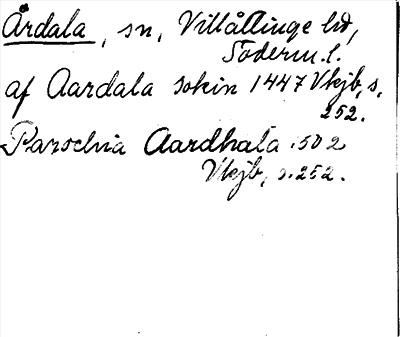 Årdala, sn, Villåttinge hd,
Söderm. l.
af Aardala sokin 1447 Vkjb, s.
252.
Parochia Aardhala 1502
Vkjb, s. 252.